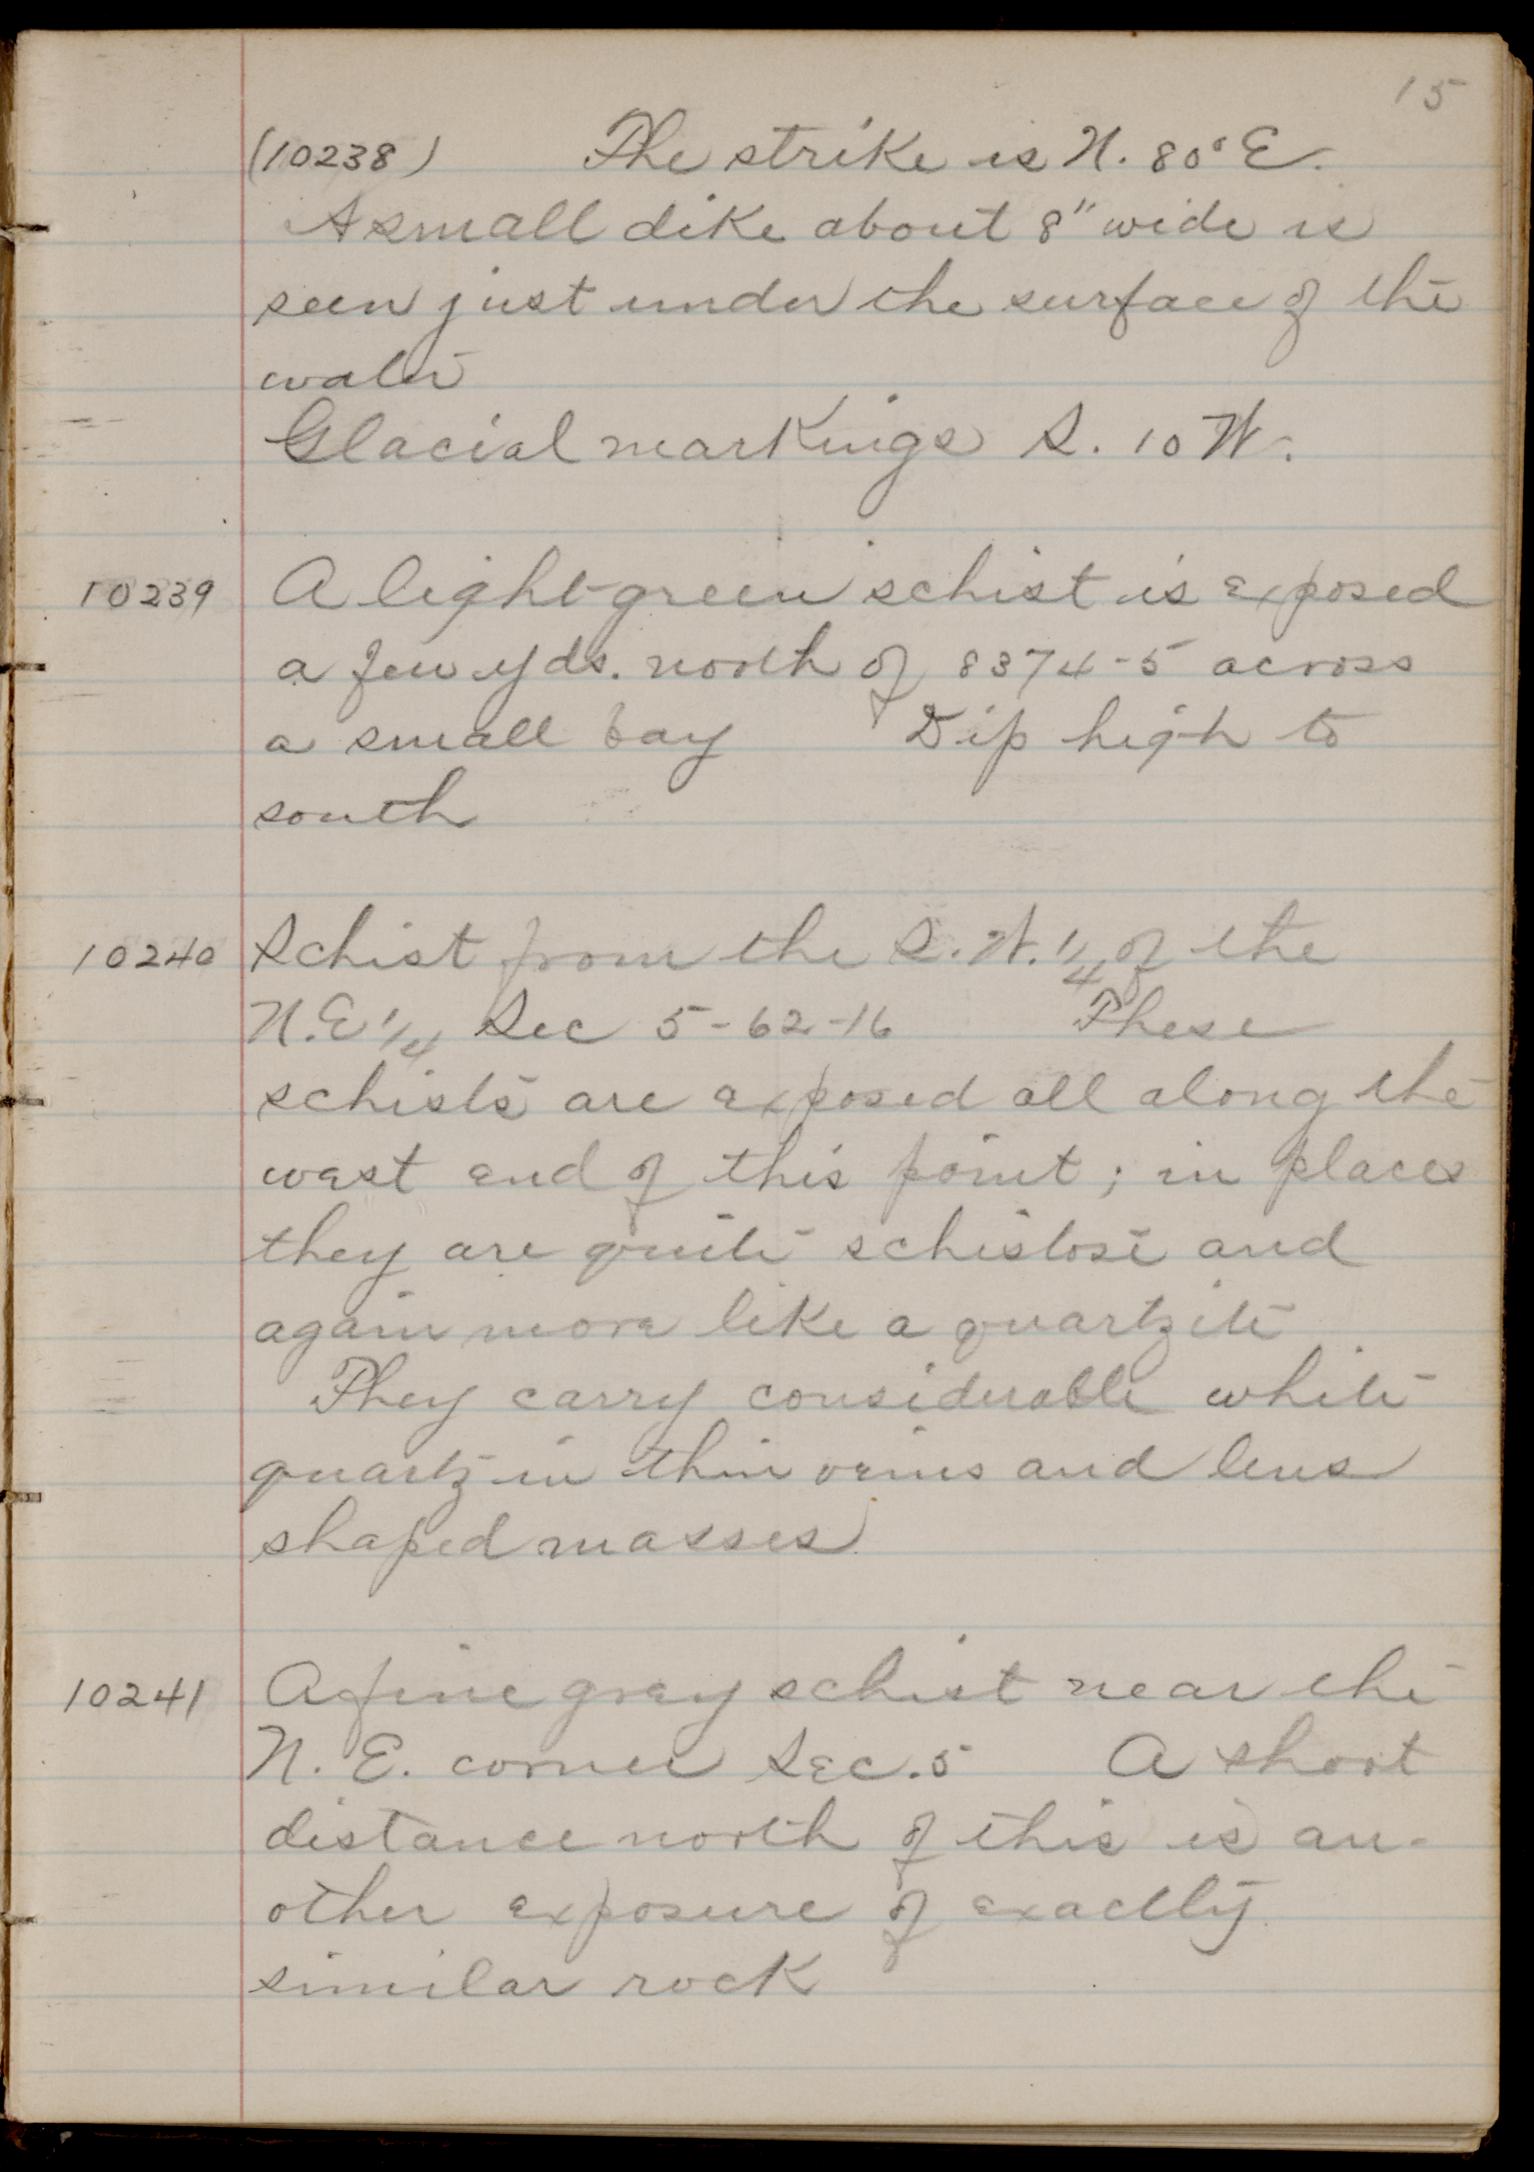 15
(10238) The strike is N. 80° E.
A small dike about 8" wide is
seen just under the surface of the
water
Glacial markings S. 10 W.
10239 A light-green schist is exposed
a few yds. north of 8374-5 across
a small bay Dip high to
south
10240 Schist from the S. W. 1/4 of the
N.E 1/4 Sec 5-62-16 These
schists are exposed all along the
west end of this point; in places
they are quite schistose and
again more like a quartzite
They carry considerable white
quartz in thin veins and lens
shaped masses
10241 A fine gray schist near the
N. E. corner Sec. 5 A short
distance north of this is an-
other exposure of exactly
similar rock